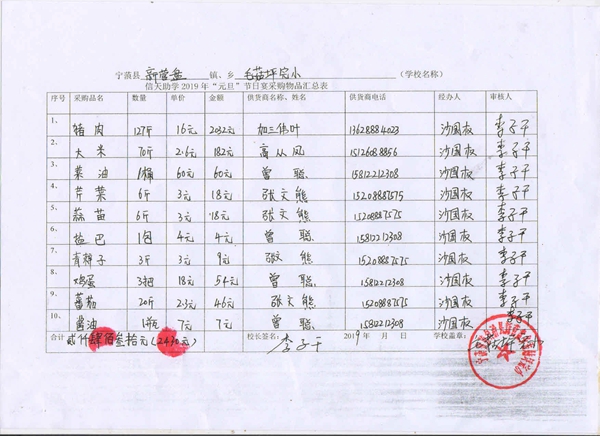 宁蒗县 新营盘 镇、乡 毛菇坪完小 (学校名称)
信天助学 2019 年“元旦”节日宴采购物品汇总表
序号 采购品名 数量 单价 金额 供货商名称、姓名 供货商电话 经办人 审核人
1、 猪肉 127斤 16元 2032元 加三伟叶 13628884023 沙国权 李子干
2、 大米 70斤 2.6元 182元 高从风 15126088856 沙国权 李子干
3、 菜油 1桶 60元 60元 曾聪 15812212308 沙国权 李子干
4、 芹菜 6斤 3元 18元 张文熊 15208887575 沙国权 李子干
5、 蒜苗 6斤 3元 18元 张文熊 15208887575 沙国权 李子干
6、 盐巴 1包 4元 4元 曾聪 15812212308 沙国权 李子干
7、 青椒子 3斤 3元 9元 张文熊 15208887575 沙国权 李子干
8、 鸡蛋 3把 18元 54元 曾聪 15812212308 沙国权 李子干
9、 蕃茄 20斤 2.3元 46元 张文熊 15208887575 沙国权 李子干
10、 酱油 1瓶 7元 7元 曾聪 15812212308 沙国权 李子干
合计 贰仟肆佰叁拾元(2430元) 校长签名: 李子干 2019 年 月 日 学校盖章: